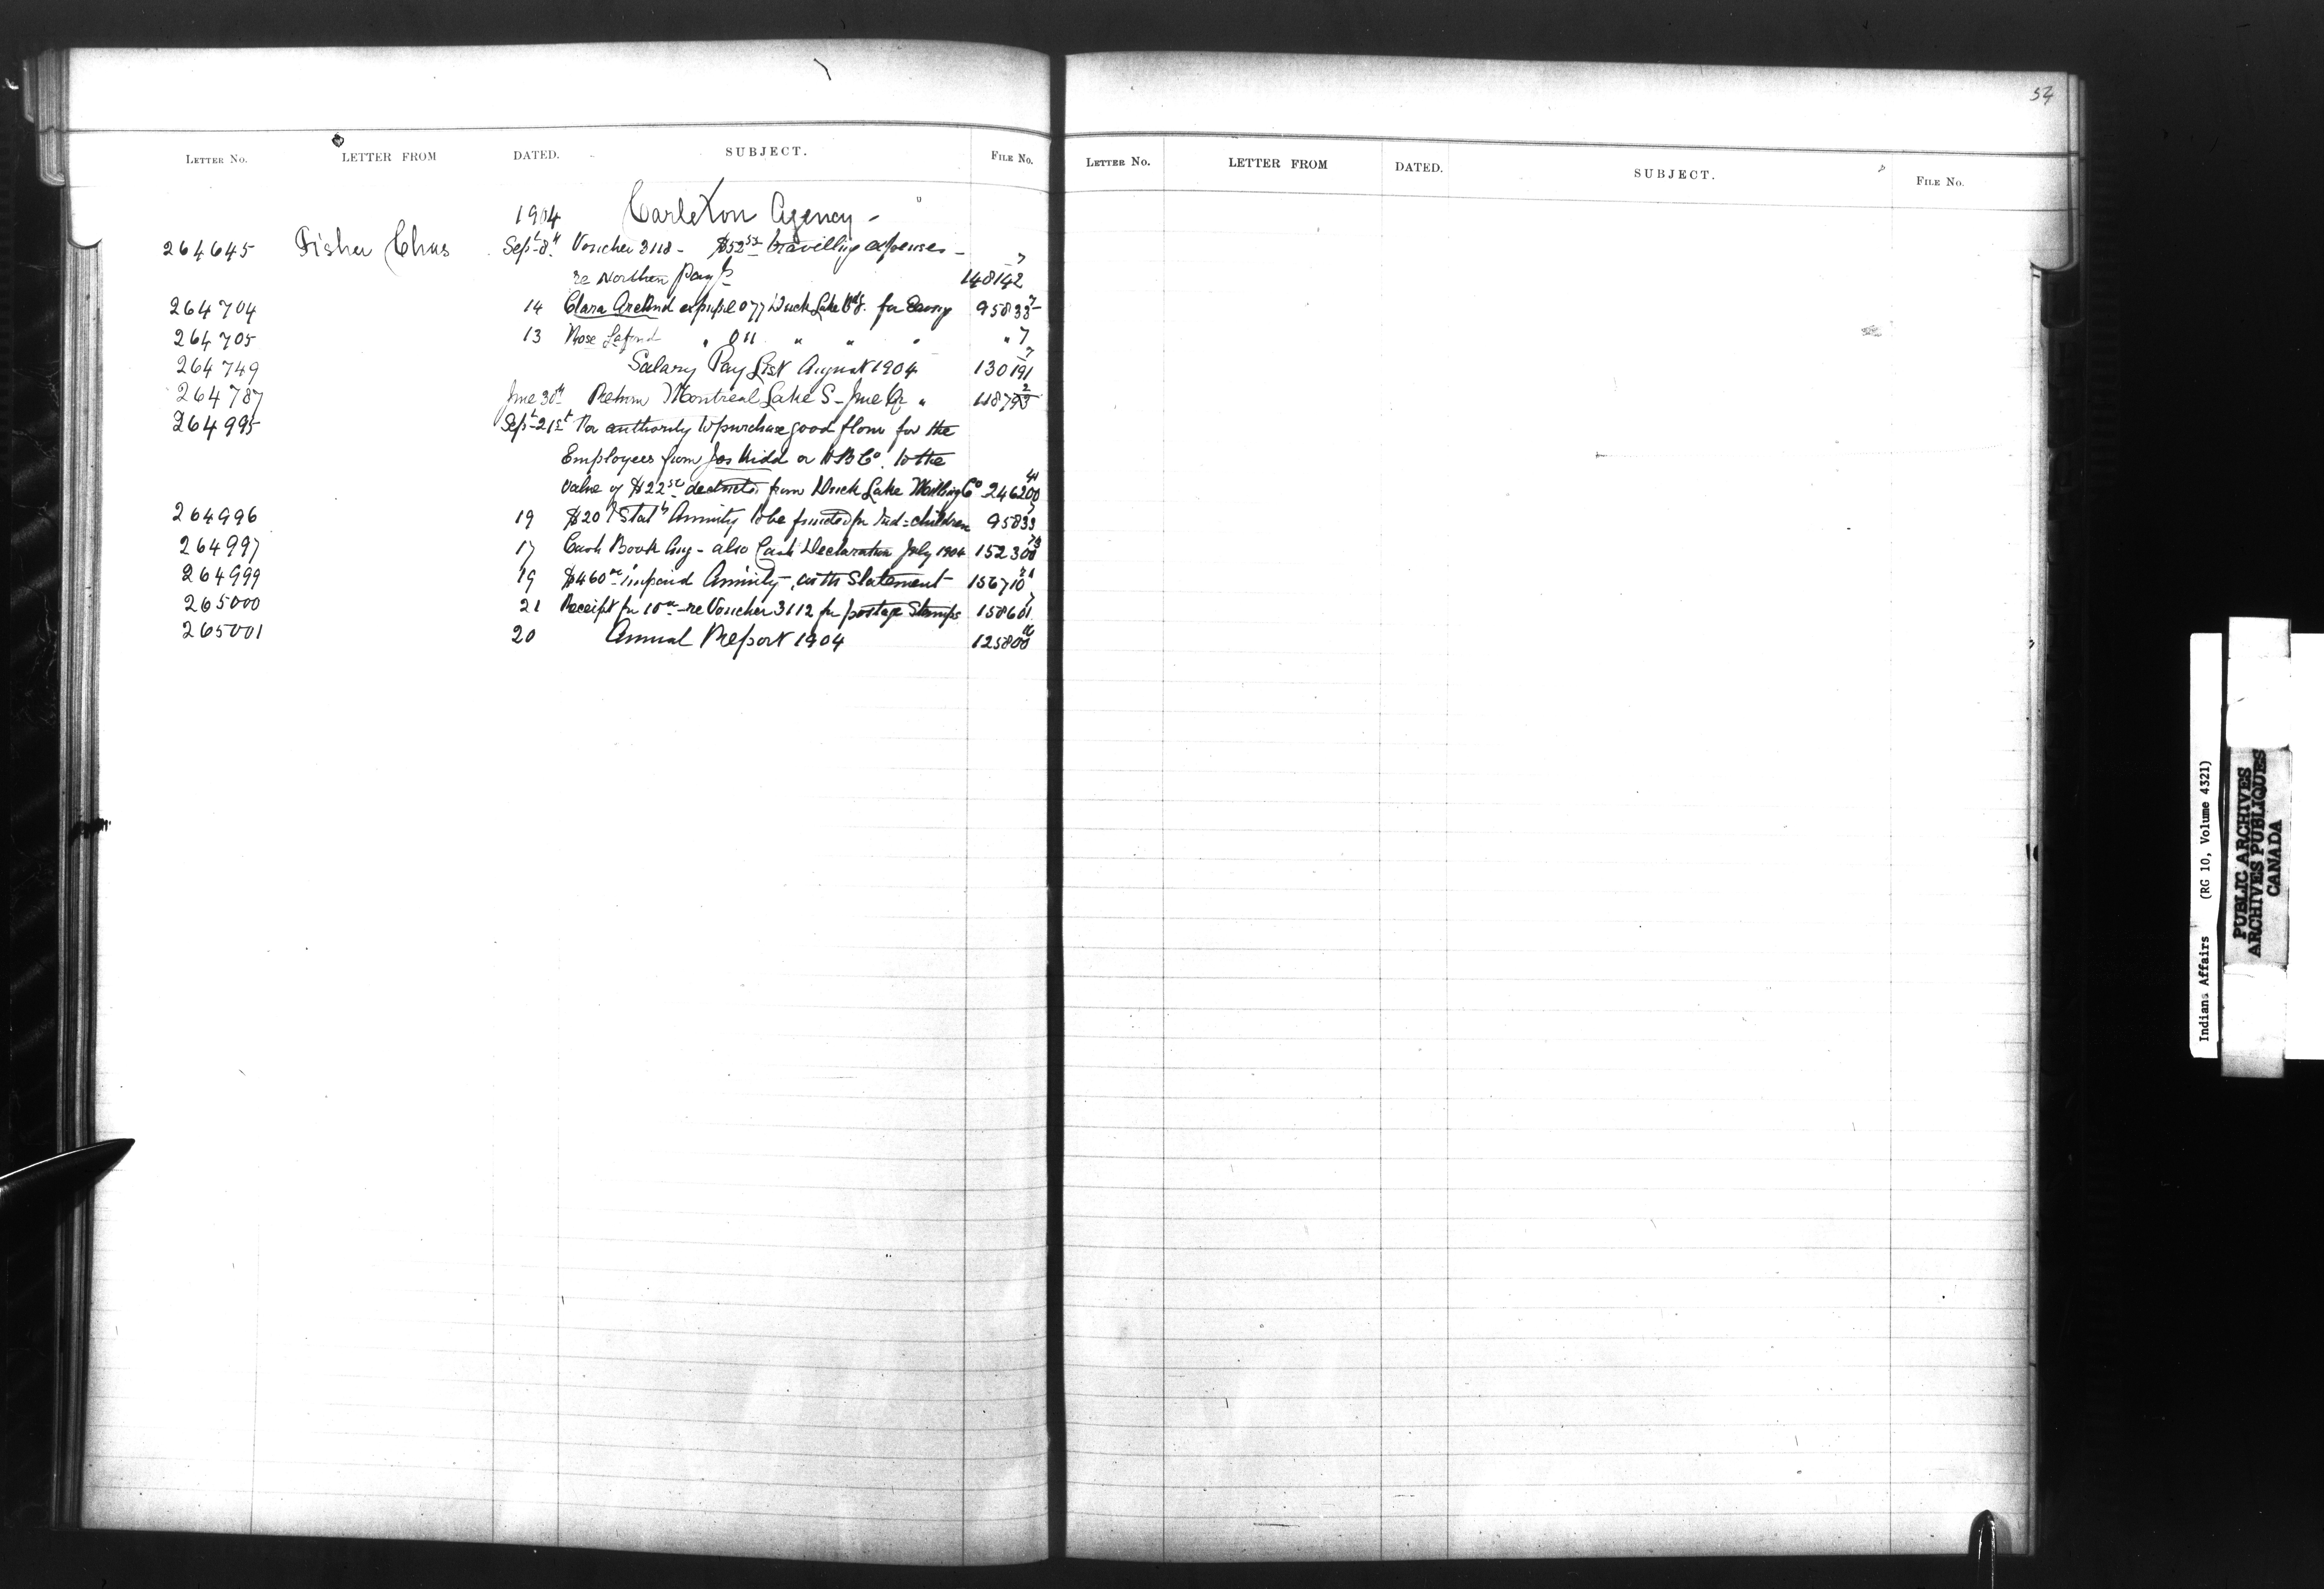 54
LETTER NO. LETTER FROM DATED. SUBJECT. FILE NO.
LETTER NO. LETTER FROM DATED. SUBJECT. FILE NO.
1904 Carleton Agency -
264645 Fisher Chas Sept 8th Voucher 3118 - $52 travelling expenses -
re Northern Payts 148142 7
264704 14 Clara expupil 077 Duck Lake Bdg. for 95833 7
264705 13 Rose Lafond " 011 " " " " 7
264749 Salary Pay List August 1904 130191 7
264787 June 30th Return Montreal Lake S - June Qr " 118793 2
264995 Sept 21st For authority to purchase good flour for the
Employees from Jos or H B Co. to the
value of $22 50 deducted from Duck Lake Milling Co 246200
264996 19 $20 Annuity to be funded for Ind - children 95833 7
264997 17 Cash Book Aug - also Cash Declaration July 1904 152300
264999 19 $460 00 unpaid Annuity - with Statement 156710
265000 21 Receipt for 10 00 - re Voucher 3112 for postage Stamps 158601 7
265001 20 Annual Report 1904 125800
Indians Affairs (RG 10, Volume 4321)
PUBLIC ARCHIVES
ARCHIVES PUBLIQUES
CANADA